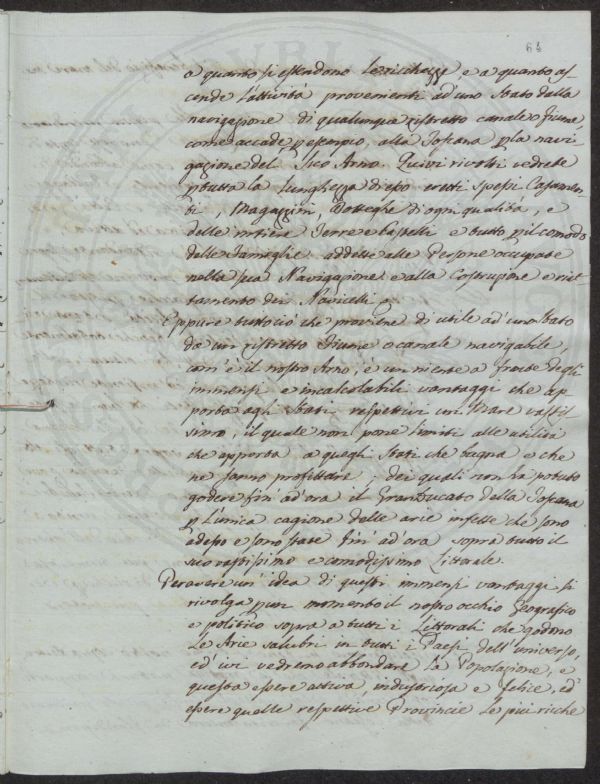 64
a quanto si estendono le ricchezze, e a quanto as-
cende l'attività provenienti ad'uno Stato dalla
navigazione di qualunque ristretto canale o fiume,
come accade, p esempio, alla Toscana p la navi-
gazione del Suo Arno. Quivi rivolti vedrete
p tutta la Lunghezza di esso eretti spessi Casamen-
ti, Magazzini, Botteghe di ogni qualità, e
delle intiere Terre e Castelli e tutto p il comodo
delle Famiglie addette alle Persone occupate
nella sua Navigazione e alla Costruzione e riat-
tamento dei Navicelli.
Eppure tutto ciò che proviene di utile ad'uno Stato
da un ristretto Fiume o canale navigabile,
com'è il nostro Arno, è un niente a fronte degli
immensi e incalcolabili vantaggi che ap-
porta agli Stati respettivi un Mare vastis-
simo, il quale non pone limiti alle utilità
che apporta a quegli Stati che bagna e che
ne sanno profittare; dei quali non ha potuto
godere fin'ad'ora il GranDucato della Toscana
p l'unica cagione delle arie infette che sono
adesso e sono state fin'ad'ora sopra tutto il
suo vastissimo e comodissimo Littorale.
Per avere un'idea di questi immensi vantaggi si
rivolga p un momento il nostro occhio Geografico
e politico sopra a tutti i Littorali che godono
le Arie salubri in tutti i Paesi dell'universo,
ed'ivi vedremo abbondare la Popolazione, e
questa essere attiva, industriosa e felice, ed'
essere quelle respettive Provincie le più ricche